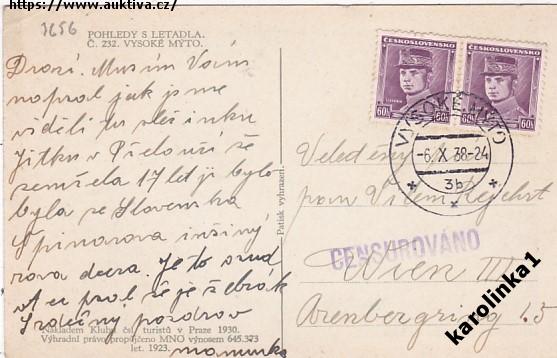 https://www.auktiva.cz/
3656
POHLEDY S LETADLA.
Č. 232. VYSOKÉ MÝTO.
Drazí. Musím Vám
napsat jak jsme
viděli tu slečinku
Jitku v Přelouči že
zemřela 17 let jí bylo
byla ze Slovenska
inžiný
rova dcera. Je to srud
se je žebrák
Srdečný pozdrav
maminka
Nákladem Klubu čsl. turistů v Praze 1930.
Výhradní právo propůjčeno MNO výnosem 645.373
let. 1923.
Patisk vyhrazen.
ČESKOSLOVENSKO
ČESKOSLOVENSKO
60h
60h
VYSOKÉ MÝTO
-6. X. 38-24
3b
pan Vilem
CENSUROVÁNO
Wien III
Arenbergring 15
karolinka1